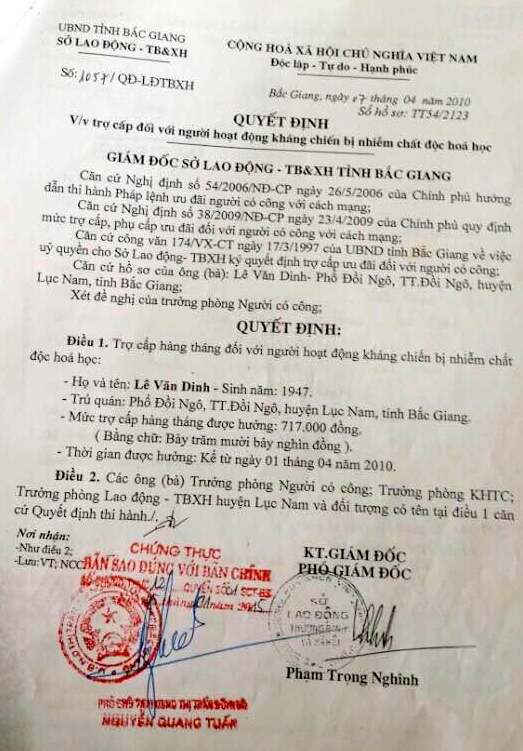 UBND TỈNH BẮC GIANG
SỞ LAO ĐỘNG - TB&XH
CỘNG HOÀ XÃ HỘI CHỦ NGHĨA VIỆT NAM
Độc lập - Tự do - Hạnh phúc
Số: 1057/ QĐ-LĐTBXH
Bắc Giang, ngày 07 tháng 04 năm 2010
Số hồ sơ: TT54/2123
QUYẾT ĐỊNH
V/v trợ cấp đối với người hoạt động kháng chiến bị nhiễm chất độc hoá học
GIÁM ĐỐC SỞ LAO ĐỘNG - TB&XH TỈNH BẮC GIANG
Căn cứ Nghị định số 54/2006/NĐ-CP ngày 26/5/2006 của Chính phủ hướng
dẫn thi hành Pháp lệnh ưu đãi người có công với cách mạng;
Căn cứ Nghị định số 38/2009/NĐ-CP ngày 23/4/2009 của Chính phủ quy định
mức trợ cấp, phụ cấp ưu đãi đối với người có công với cách mạng;
Căn cứ công văn 174/VX-CT ngày 17/3/1997 của UBND tỉnh Bắc Giang về việc
uỷ quyền cho Sở Lao động- TBXH ký quyết định trợ cấp ưu đãi đối với người có công;
Căn cứ hồ sơ của ông (bà): Lê Văn Dinh- Phố Đồi Ngô, TT.Đồi Ngô, huyện
Lục Nam, tỉnh Bắc Giang;
Xét đề nghị của trưởng phòng Người có công;
QUYẾT ĐỊNH:
Điều 1. Trợ cấp hàng tháng đối với người hoạt động kháng chiến bị nhiễm chất
độc hoá học:
- Họ và tên: Lê Văn Dinh - Sinh năm: 1947.
- Trú quán: Phố Đồi Ngô, TT.Đồi Ngô, huyện Lục Nam, tỉnh Bắc Giang.
- Mức trợ cấp hàng tháng được hưởng: 717.000 đồng.
( Bằng chữ: Bảy trăm mười bảy nghìn đồng ).
- Thời gian được hưởng: Kể từ ngày 01 tháng 04 năm 2010.
Điều 2. Các ông (bà) Trưởng phòng Người có công; Trưởng phòng KHTC;
Trưởng phòng Lao động - TBXH huyện Lục Nam và đối tượng có tên tại điều 1 căn
cứ Quyết định thi hành./.
Nơi nhận:
-Như điều 2;
-Lưu:VT; NCC
CHỨNG THỰC
BẢN SAO ĐÚNG VỚI BẢN CHÍNH
QUYỂN SỐ
SCT-BS
KT.GIÁM ĐỐC
PHÓ GIÁM ĐỐC
SỞ
LAO ĐỘNG
THƯƠNG BINH
VÀ XÃ HỘI
Phạm Trọng Nghinh
NGUYỄN QUANG TUẤN